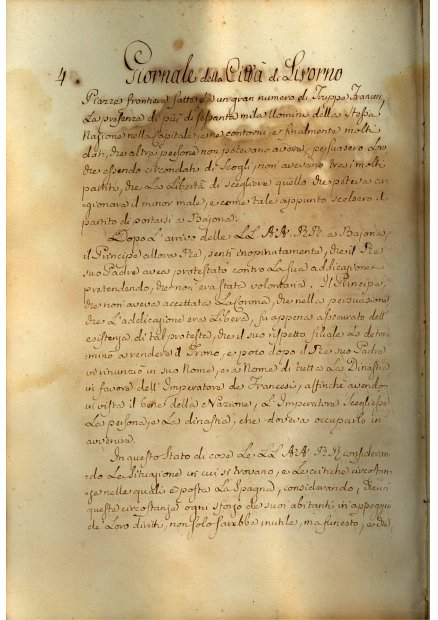 4. Giornale della Città di Livorno
Piazze frontiere fatte da un gran numero di Truppe Francesi,
La presenza di più di sessanta mila Uomini della Stessa
Nazione nella Capitale, e ne contorni, e finalmente molti
dati, che altre persone non potevano avere, persuasero a
che essendo circondati di Scogli, non avevano trà i molti
partiti, che La Libertà di scegliere quello che poteva ca-
gionare il minor male, e come tale appunto scelsero il
partito di portarsi a Bajona.
Dopo L'arrivo delle LL. AA. RR. a Bajona,
il Principe allora Rè, sentì inopinatamente, che il Re
suo Padre avea protestato contro La sua addicazione
pretendendo, che non era stata volontaria. Il Principe,
che non aveva accettata La Corona, che nella persuasione
che L'addicazione era Libera, fù appena assicurato dell'
esistenza di tal protesta, che il suo rispetto filiale Lo deter-
minò a rendere il Trono, e poco dopo il Re suo Padre
vi rinunziò in suo Nome, e a Nome di tutta La Dinastia
in favore dell'Imperatore de Francesi, affinchè avendo
in vista il bene della Nazione, L'Imperatore Scegliesse
La persona, e La dinastia, che doveva occuparlo in
avvenire.
In questo Stato di cose Le LL. AA. RR. consideran-
do La Situazione in cui si trovano, e Le critiche circostan-
ze nelle quali è posta La Spagna, considerando, che in
queste circostanze ogni sforzo de suoi abitanti in appoggio
de Loro diritti, non solo sarebbe inutile, ma funesto, e che